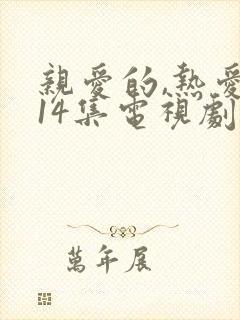 親愛的,熱愛
14集電視劇
萬年展